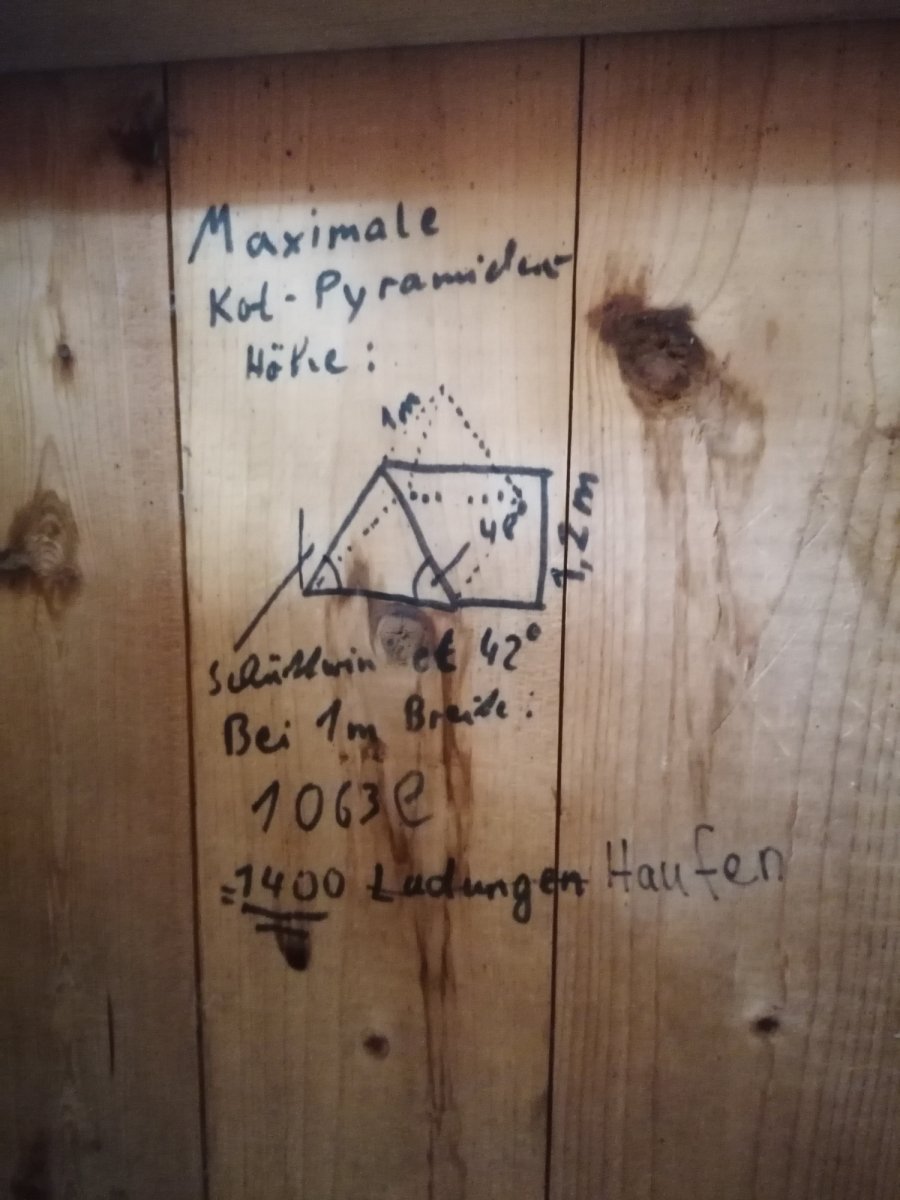 Maximale
Kot-Pyramiden
Höhe:
1m
48°
1,2m
Schüttwinkel 42°
Bei 1m Breite:
1063l
=1400 Ladungen Haufen